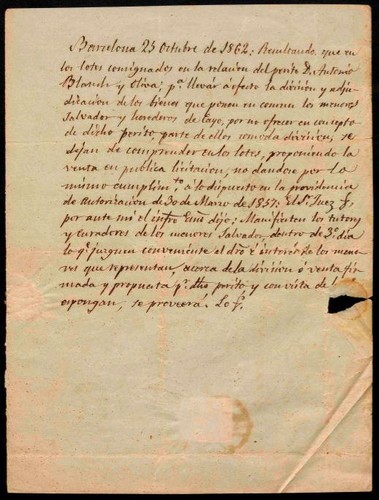 Barcelona 25 Octubre de 1862: Resultando, que en
los lotes consignados en la relacion del perito D. Antonio
Blanch y Oliva; pª llevár á efecto la division y adju-
dicacion de los bienes que ponen en comun los menores
Salvador y herederos de Cayo, por no ofrecer en concepto
de dicho perito, parte de ellos comoda division, se
dejan de comprender en los lotes, proponiendo la
venta en publica licitacion, no dandose por lo
mismo cumplimto á lo dispuesto en la providencia
de autorizacion de 30 de Marzo de 1857: el Sr. Juez
por ante mi el infro Esno dijo: Manifiesten los tutores
y curadores de los menores Salvador, dentro de 3º dia
lo q. juzguen conveniente al dro. é interés de los meno-
res que representan, acerca de la division ó venta fir-
mada y propuesta pr. dho perito y con vista de
espongan, se proveerá. Lo